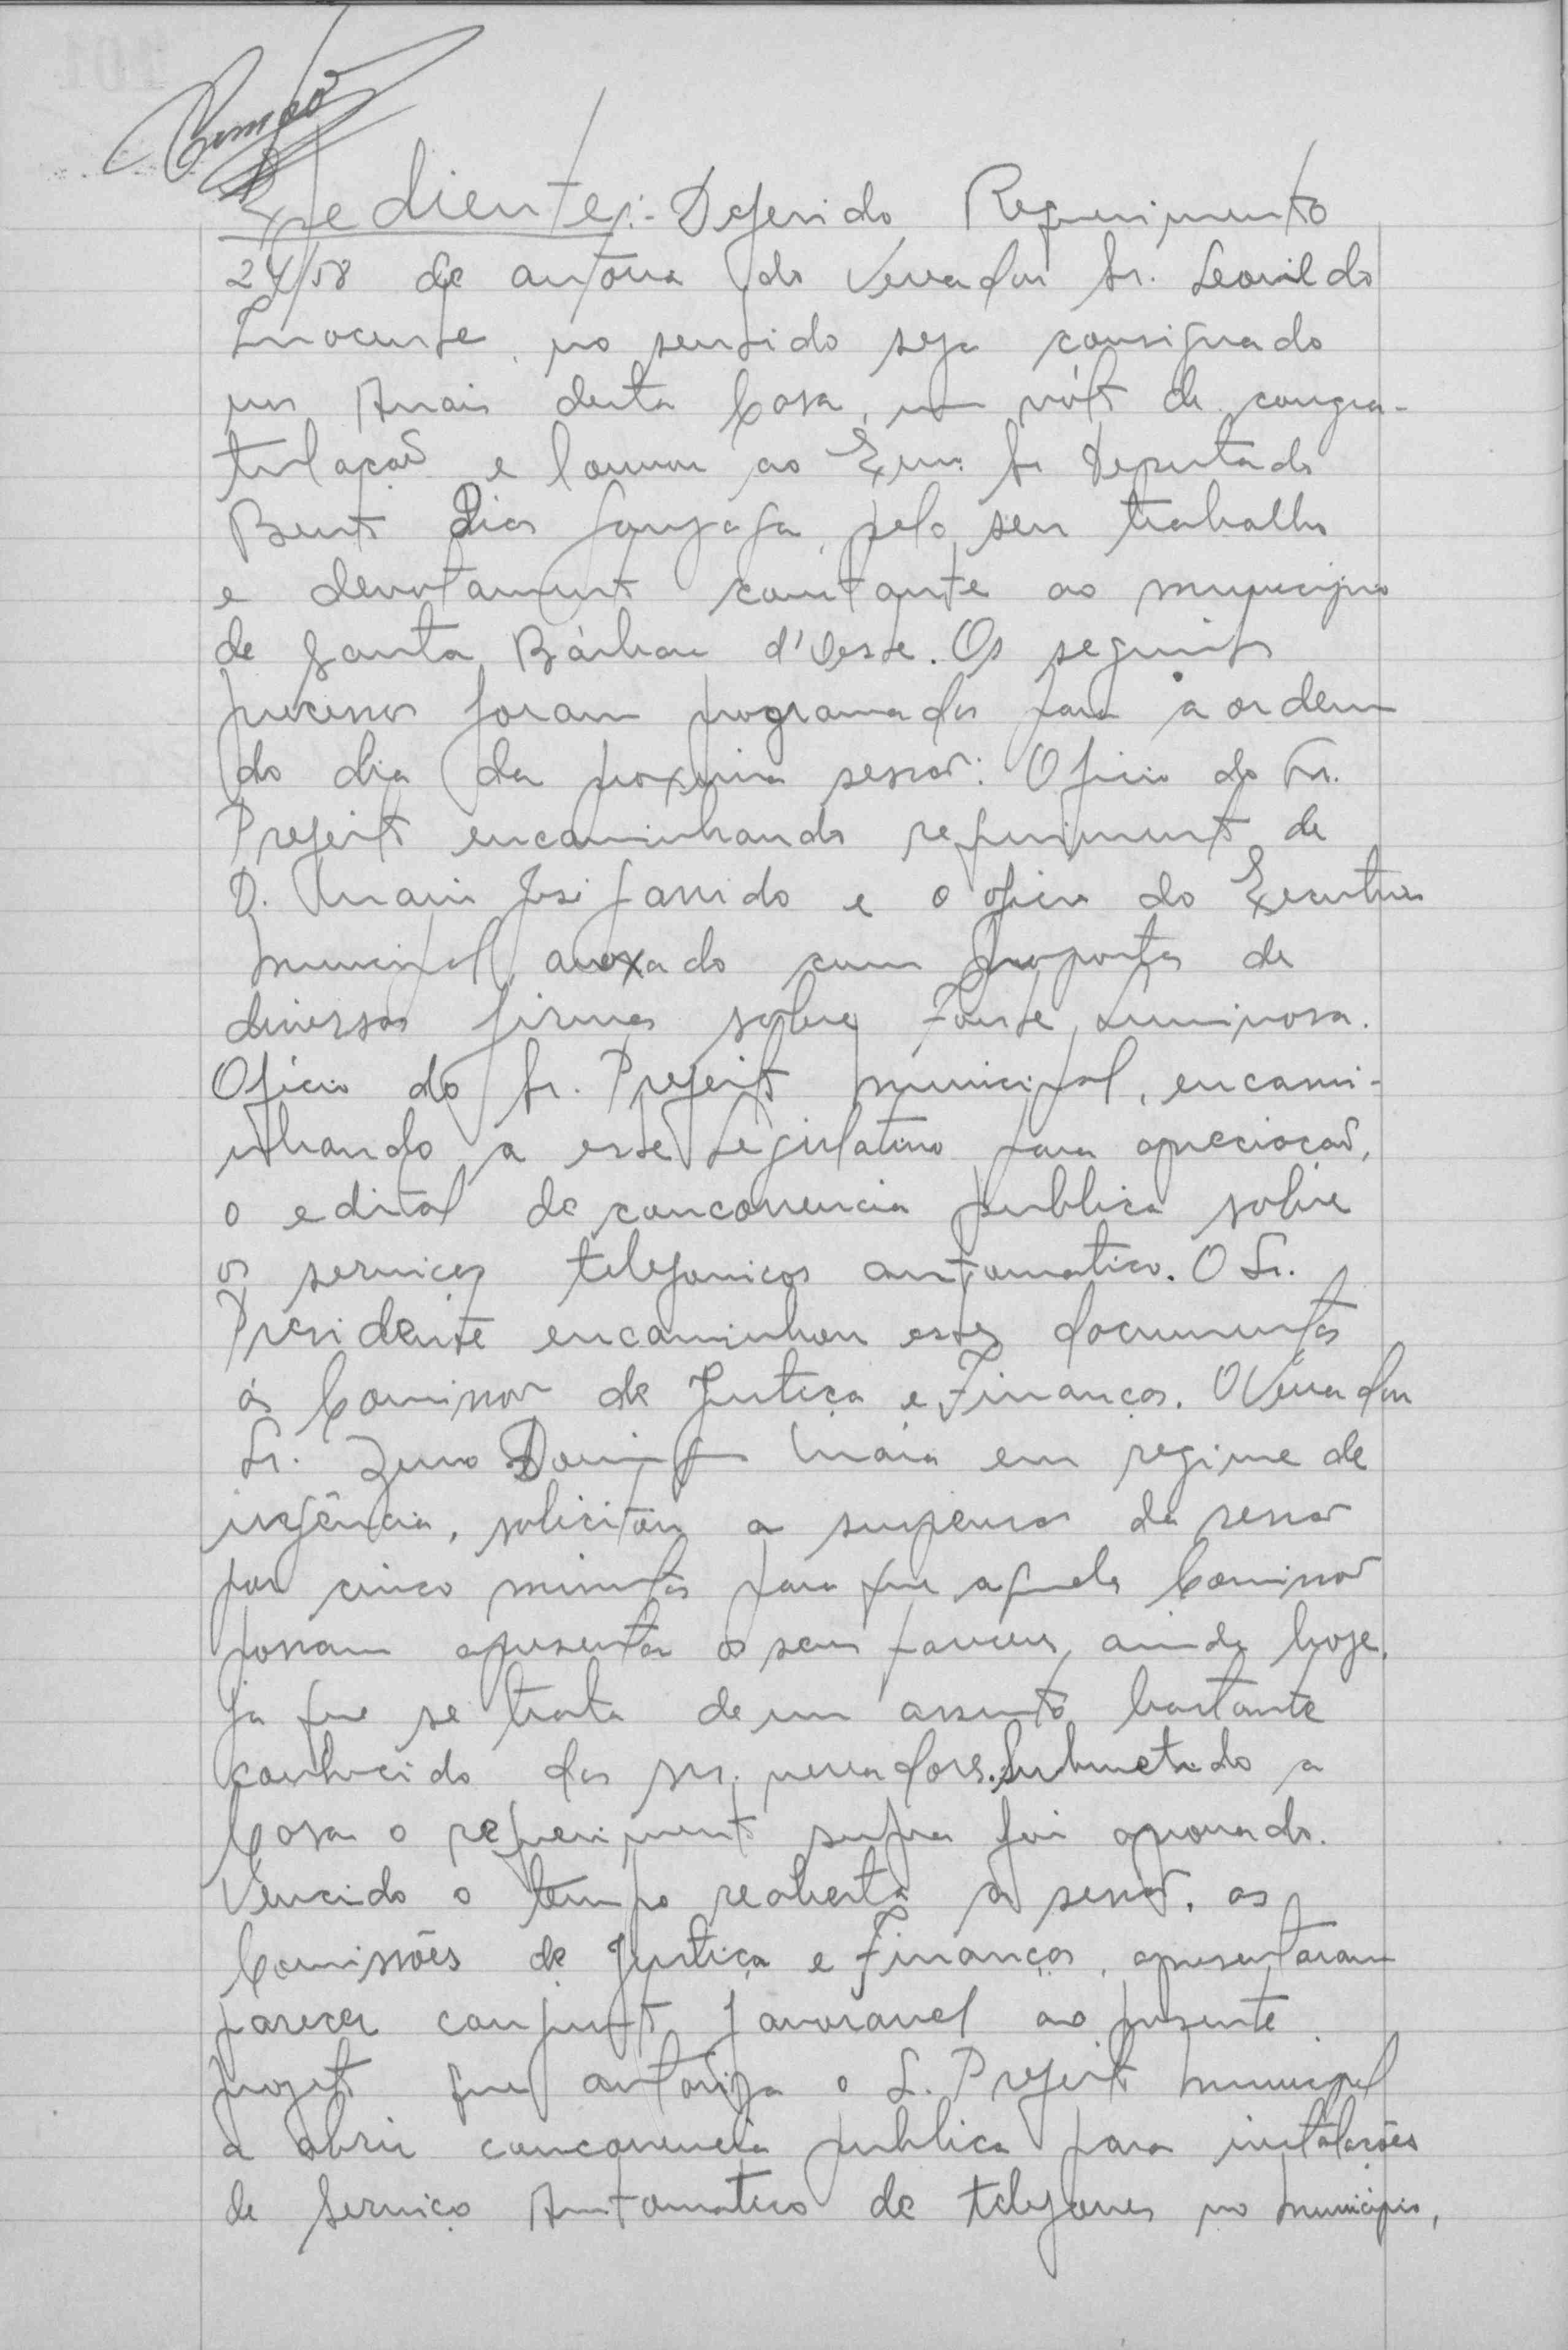 Expediente:- Deferido Requerimento
24/58 de autoria do Vereador Sr. Leonildo
Inocente, no sentido seja consignado
nos Anais desta Casa, um vóto de congra-
tulação e louvor ao Exmo. Sr. Deputado
Bento Dias Gonzaga, pelo seu trabalho
e devotamento constante ao municipio
de Santa Bárbara d'Oeste. Os seguintes
processos foram programados para a ordem
do dia da proxima sessão: Oficio do Sr.
Prefeito encaminhando requerimento de
D. Maria José Garrido e o oficio do Executivo
Municipal, anexado com propostas de
diversas firmas sobre Fonte Luminosa.
Oficio do Sr. Prefeito Municipal, encami-
nhando a este Legislativo para apreciação,
o edital de concorrencia publica sobre
os serviços telefonicos automatico. O Sr.
Presidente encaminhou estes documentos
ás Comissão de Justiça e Finanças. O Vereador
Sr. Zeno Domingos Maia em regime de
urgência, solicitou a suspensão da sessão
por cinco minutos para que aquela Comissão
possam apresentar os seus parecer, ainda hoje,
já que se trata de um assunto bastante
conhecido dos srs. vereadores. Submetido a
Casa o requerimento supra foi aprovado.
Vencido o tempo reaberta a sessão, as
Comissões de Justiça e Finanças, apresentaram
parecer conjunto favoravel ao presente
projeto que autoriza o S. Prefeito Municipal
a abrir concorrencia publica para instalações
de Serviço Automatico de telefones no Municipio,